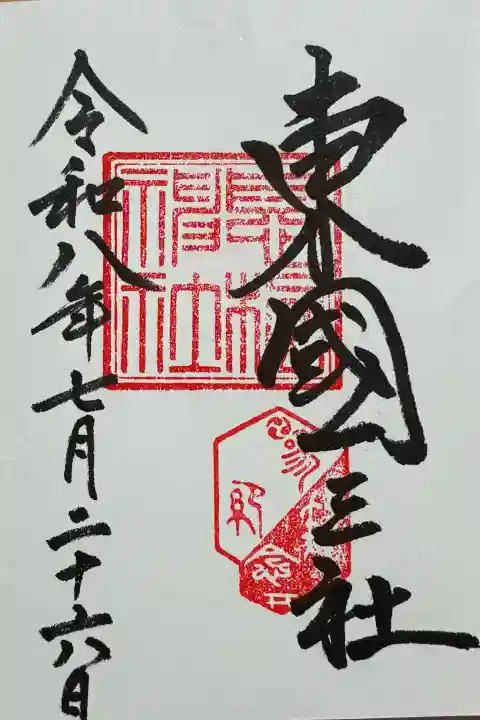 東國三社
令和八年七月二十六日